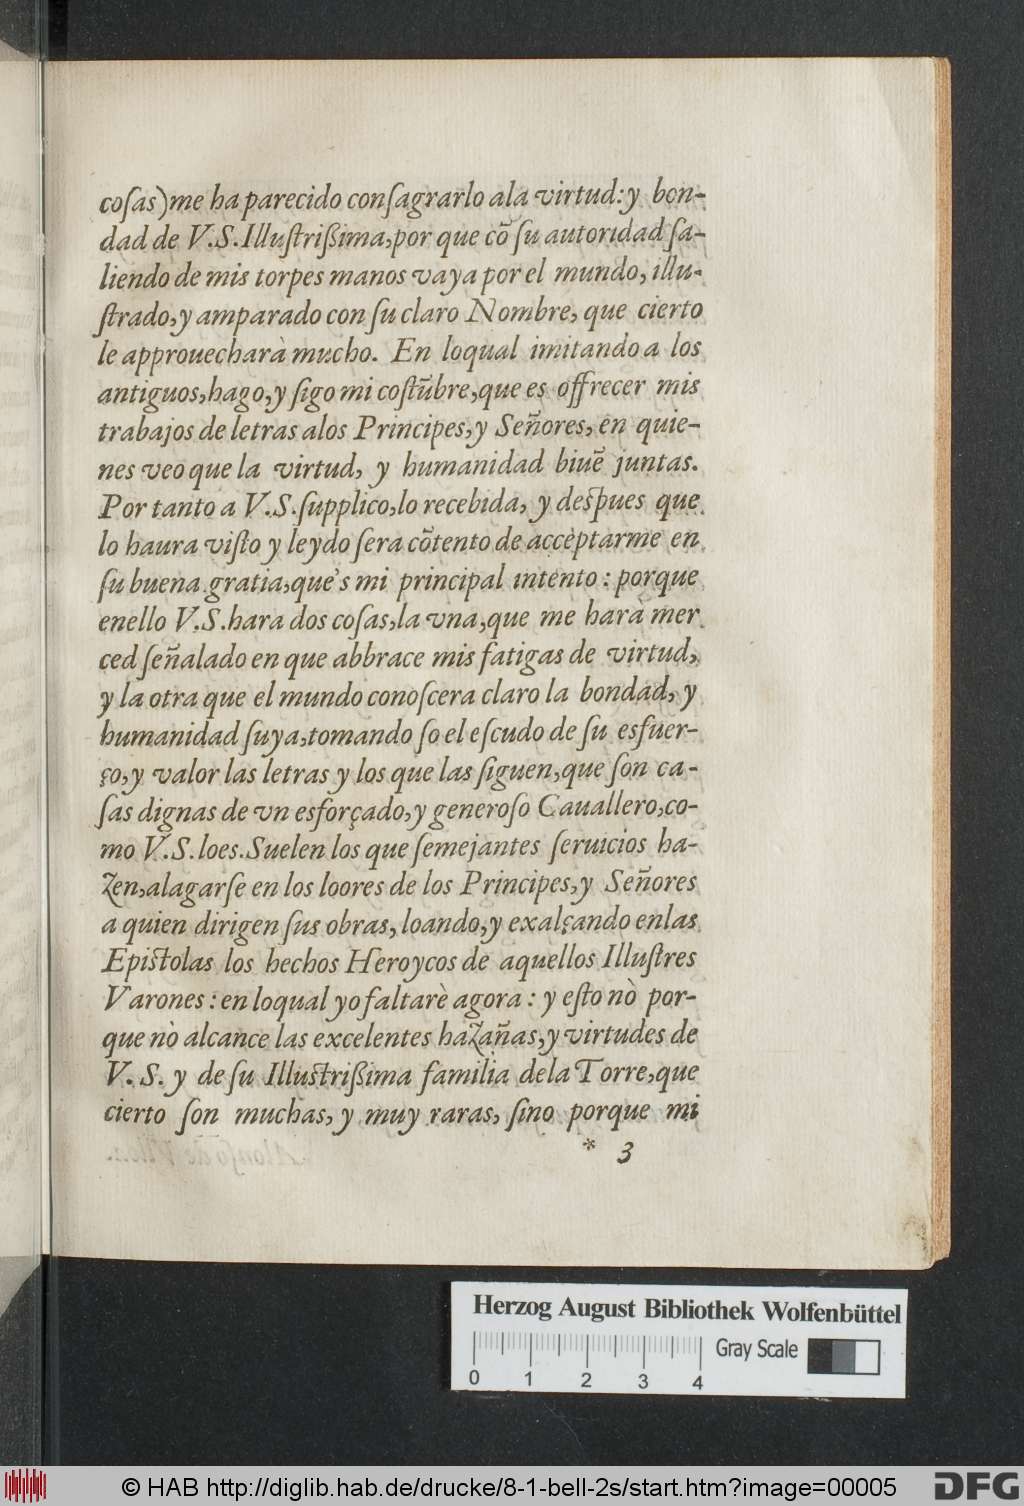 coſas)me ha parecido conſagrarlo ala virtud:y bon-
dad de V.S.Illuſtrißima,por que cõ ſu autoridad ſa-
liendo de mis torpes manos vaya por el mundo, illu-
ſtrado,y amparado con ſu claro Nombre, que cierto
le approuecharà mucho. En loqual imitando a los
antiguos,hago,y ſigo mi coſtũbre,que es offrecer mis
trabajos de letras alos Principes,y Señores, en quie-
nes veo que la virtud, y humanidad biuẽ juntas.
Por tanto a V.S.ſupplico,lo recebida, y deſpues que
lo haura viſto y leydo ſera cõtento de accèptarme en
ſu buena gratia,que's mi principal intento : porque
enello V.S.hara dos coſas,la vna,que me harà mer
ced ſeñalado en que abbrace mis fatigas de virtud,
y la otra que el mundo conoſcera claro la bondad, y
humanidad ſuya,tomando ſo el eſcudo de ſu esfuer-
ço,y valor las letras y los que las ſiguen,que ſon ca-
ſas dignas de vn esforçado,y generoſo Cauallero,co-
mo V.S.loes.Suelen los que ſemejantes ſeruicios ha-
zen,alagarſe en los loores de los Principes,y Señores
a quien dirigen ſus obras, loando,y exalçando enlas
Epiſtolas los hechos Heroycos de aquellos Illuſtres
Varones : en loqual yo faltarè agora : y eſto nò por-
que nò alcance las excelentes hazañas,y virtudes de
V. S. y de ſu Illuſtrißima familia dela Torre,que
cierto ſon muchas, y muy raras, ſino porque mi
* 3
Herzog August Bibliothek Wolfenbüttel
Gray Scale
0 1 2 3 4
© HAB http://diglib.hab.de/drucke/8-1-bell-2s/start.htm?image=00005
DFG